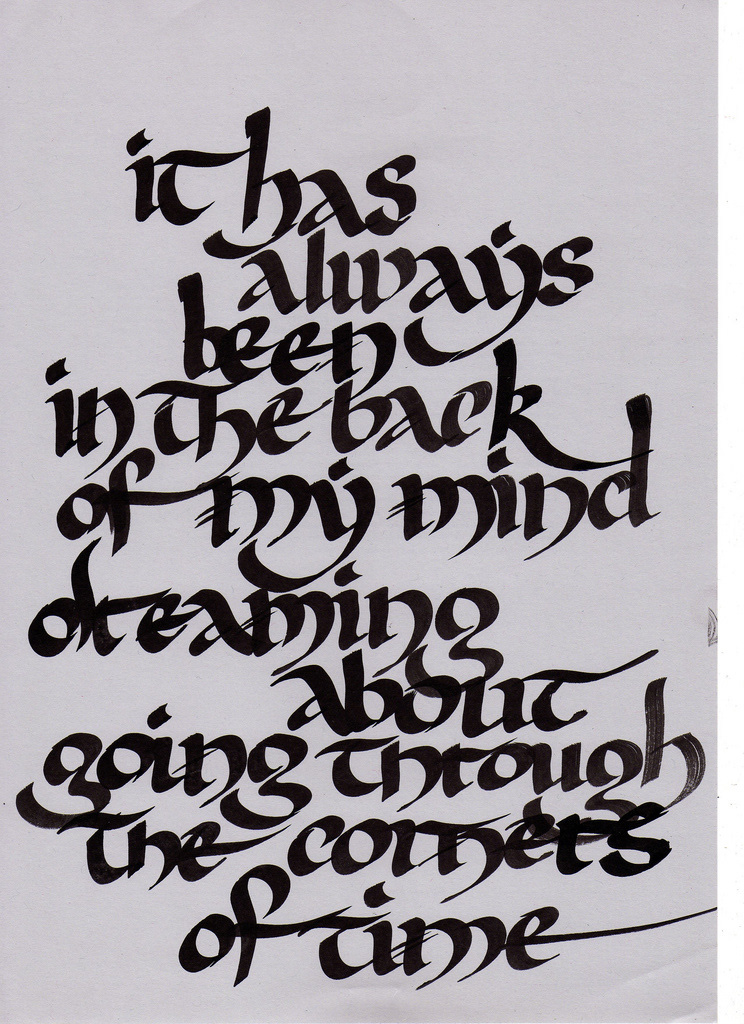 it has
always
been
in the back
of my mind
dreaming
about
going through
the corners
of time